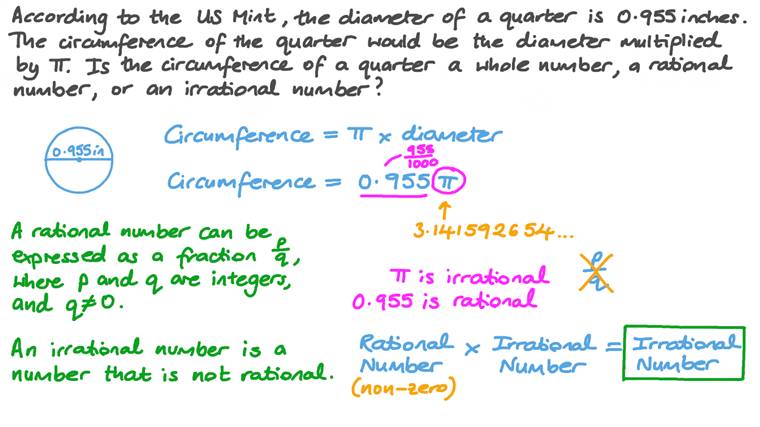 According to the US Mint, the diameter of a quarter is 0.955 inches.
The circumference of the quarter would be the diameter multiplied
by π. Is the circumference of a quarter a whole number, a rational
number, or an irrational number?
0.955 in
Circumference = π × diameter
955/1000
Circumference = 0.955 π
3.141592654...
A rational number can be
expressed as a fraction p/q,
where p and q are integers,
and q≠0.
π is irrational
p/q
0.955 is rational
An irrational number is a
number that is not rational.
Rational × Irrational = Irrational
Number Number Number
(non-zero)